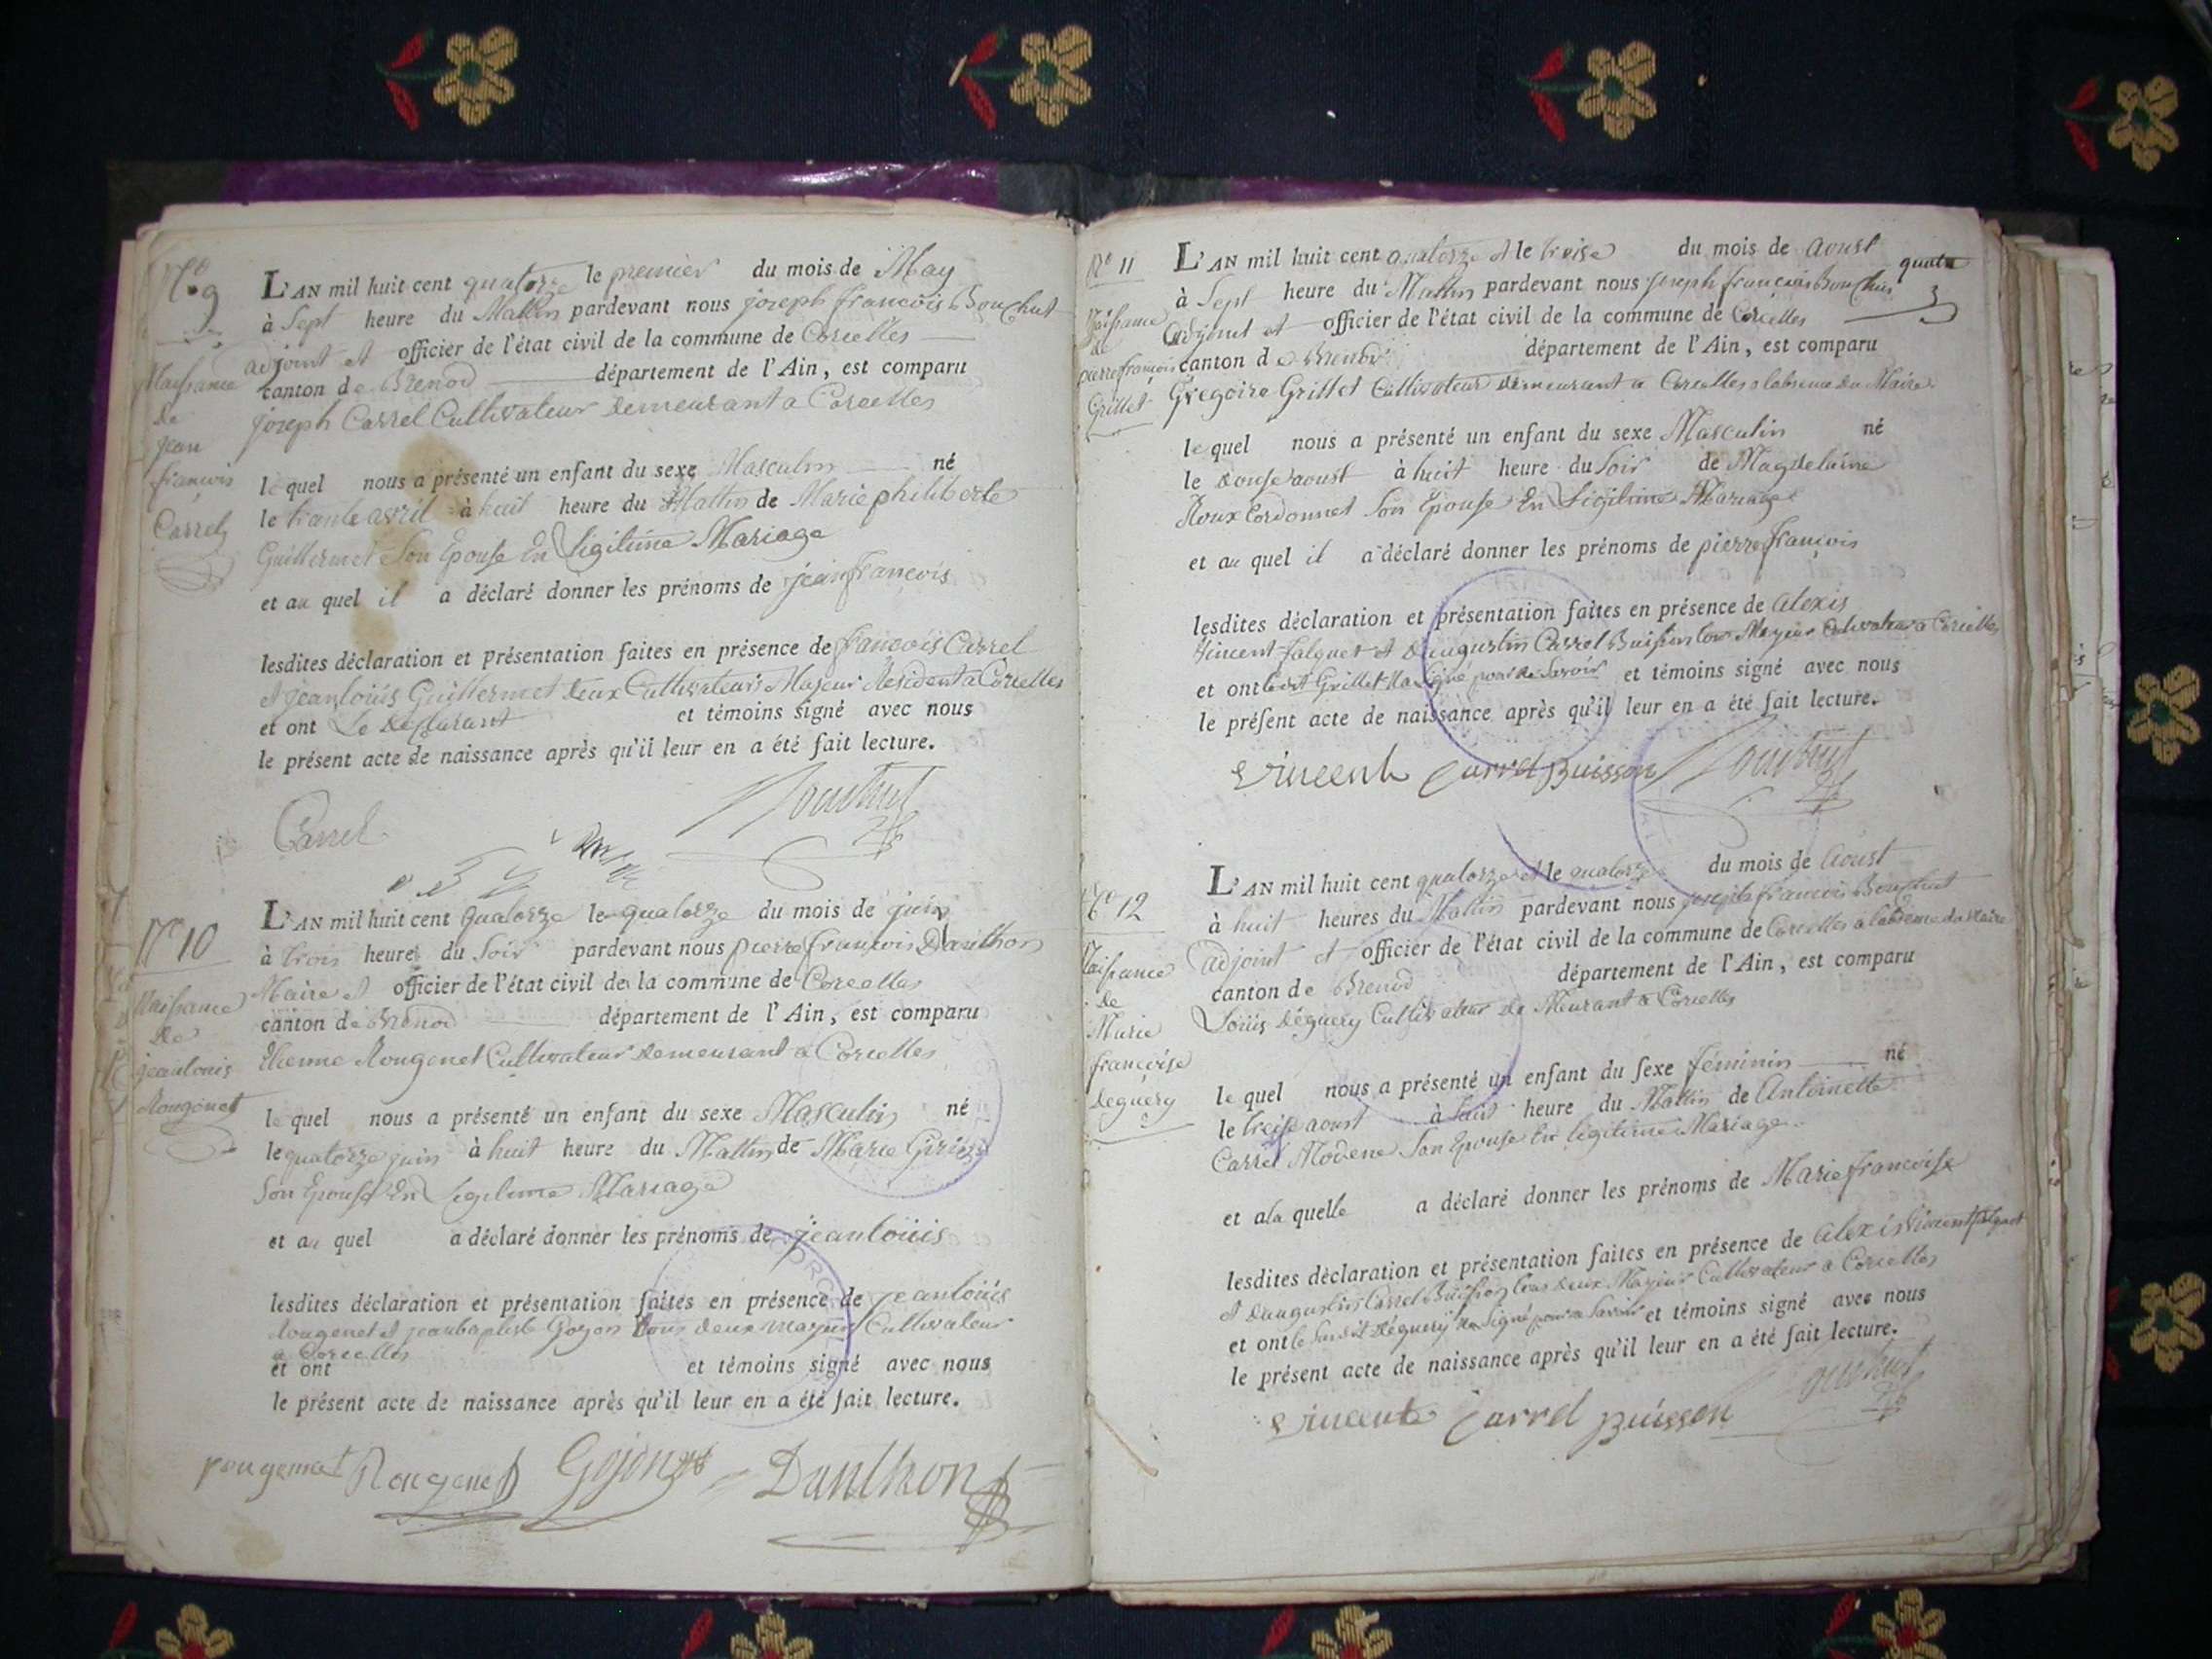 N° 9
Naissance
de
jean
francois
Carrel
L'AN mil huit cent quatorze le premier du mois de May
à Sept heure du Mattin pardevant nous joseph francois Bouchut
adjoint et officier de l'état civil de la commune de Corcelles
canton de Brenod département de l'Ain, est comparu
joseph Carrel Cultivateur demeurant a Corcelles
le quel nous a présenté un enfant du sexe Masculin né
le trante avril à huit heure du Mattin de Marie philiberte
Guillermet Son Epouse En Ligitime Mariage
et au quel il a déclaré donner les prénoms de jean francois
lesdites déclaration et présentation faites en présence de francois Carrel
et jean louis Guillermet deux Cultivateurs Majeur Resident a Corcelles
et ont Le déclarant et témoins signé avec nous
le présent acte de naissance après qu'il leur en a été fait lecture.
Carrel Bouchut
N° 10
Naissance
de
jean louis
Rougenet
L'AN mil huit cent quatorze le quatorze du mois de juin
à trois heure du Soir pardevant nous pierre francois Danthon
Maire et officier de l'état civil de la commune de Corcelles
canton de Brenod département de l'Ain, est comparu
Etienne Rougenet Cultivateur demeurant a Corcelles
le quel nous a présenté un enfant du sexe Masculin né
le quatorze juin à huit heure du Mattin de Marie
Son Epouse En Legitime Mariage
et au quel a déclaré donner les prénoms de jean louis
lesdites déclaration et présentation faites en présence de jean louis
Rougenet et jean baptiste Gojon tous deux majeur Cultivateur
a Corcelles
et ont et témoins signé avec nous
le présent acte de naissance après qu'il leur en a été fait lecture.
rougenet Rougenet Gojon Danthon
N° 11
Naissance
de
pierre francois
Grillet
L'AN mil huit cent quatorze et le treise du mois de aoust
à Sept heure du Mattin pardevant nous joseph francois Bouchut
adjoint et officier de l'état civil de la commune de Corcelles
canton de Brenod département de l'Ain, est comparu
Gregoire Grillet Cultivateur demeurant a Corcelles a labsence du Maire
le quel nous a présenté un enfant du sexe Masculin né
le douse aoust à huit heure du Soir de Magdelaine
Roux Cordonnet Son Epouse En Ligitime Mariage
et au quel il a déclaré donner les prénoms de pierre francois
lesdites déclaration et présentation faites en présence de alexis
Vincent falquet et daugustin Carrel Buisson tous Majeur Cultivateur a Corcelles
et ont ledit Grillet na Signé pour ne Savoir et témoins signé avec nous
le présent acte de naissance après qu'il leur en a été fait lecture.
Vincent Carrel Buisson Bouchut
N° 12
Naissance
de
Marie
francoise
deguery
L'AN mil huit cent quatorze et le quatorze du mois de aoust
à huit heures du Mattin pardevant nous joseph francois Bouchut
adjoint et officier de l'état civil de la commune de Corcelles a labsence du Maire
canton de Brenod département de l'Ain, est comparu
Louis deguery Cultivateur de Meurant a Corcelles
le quel nous a présenté un enfant du sexe féminin né
le treise aoust à huit heure du Mattin de Antoinette
Carrel Modene Son Epouse En legitime Mariage
et a la quelle a déclaré donner les prénoms de Marie francoise
lesdites déclaration et présentation faites en présence de alexis Vincent falquet
et daugustin Carrel Buisson tous deux Majeur Cultivateur a Corcelles
et ont le Susdit deguery na Signé pour ne Savoir et témoins signé avec nous
le présent acte de naissance après qu'il leur en a été fait lecture.
Vincent Carrel Buisson Bouchut